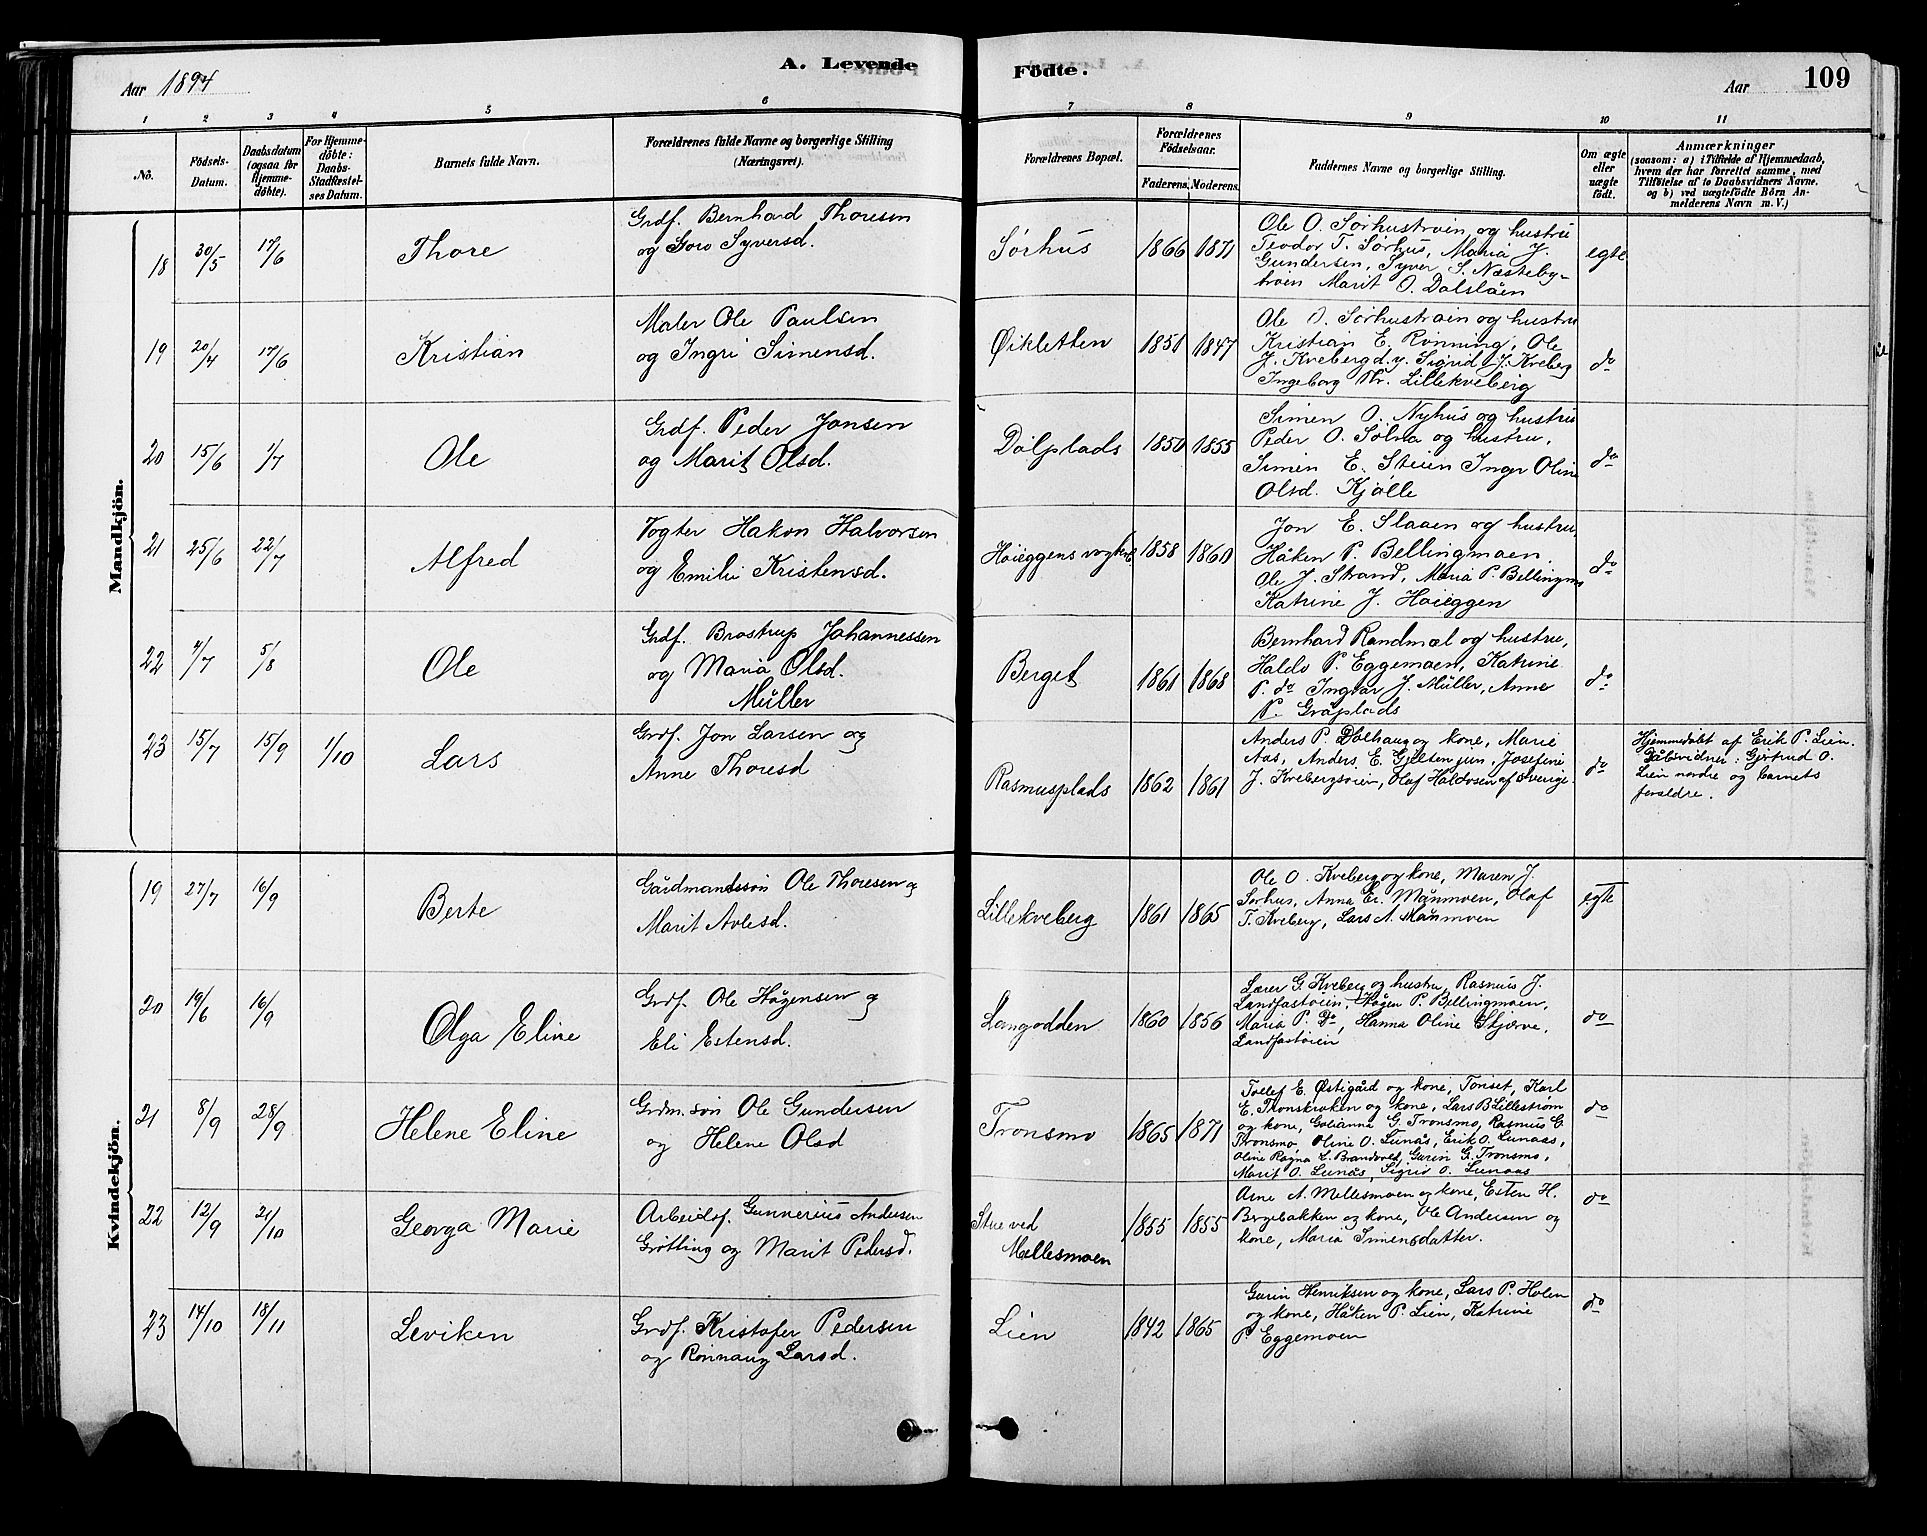 Aar 1894
A. Levende
Födte.
Aar
109
1 2 3 4 5 6 7 8 9 10 11
No.
Födsels-Datum.
Daabsdatum (ogsaa for Hjemme-döbte).
For Hjemme-döbte: Daabs-Stadfæstel-ses Datum.
Barnets fulde Navn.
Forældrenes fulde Navne og borgerlige Stilling (Næringsvei).
Forældrenes Bopæl.
Forældrenes Födselsaar.
Faderens.
Moderens.
Faddernes Navne og borgerlige Stilling.
Om ægte eller uægte födt.
Anmærkninger
(saasom: a) i Tilfælde af Hjemmedaab,
hvem der har forrettet samme, med
Tilföielse af to Daabsvidners Navne,
og b) ved uægtefödte Börn An-
melderens Navn m. V.)
Mandkjön.
18 30/5 17/6 Thore
Grdf. Bernhard Thoresen
og Goro Syversd.
Sørhus 1866 1871
Ole O. Sørhustrøen og hustru
Teodor T. Sørhus, Maria J.
Gundersen, Syver S. Næsteby-
trøen Marit O. Dalslåen
egte
19 20/4 17/6 Kristian
Maler Ole Paulsen
og Ingri Simensd.
Øikletten 1851 1847
Ole O. Sørhustrøen og hustru
Kristian E. Rønning, Ole
J. Kveberg d.y. Sigrid J. Kveberg
Ingeborg Thr. Lillekveberg
do
20 15/6 1/7 Ole
Grdf. Peder Jonsen
og Marit Olsd.
Dølplads 1850 1855
Simen O. Nyhus og hustru
Peder O. Sølna og hustru,
Simen E. Steien Inger Oline
Olsd. Kjølle
do
21 25/6 22/7 Alfred
Vogter Hakon Halvorsen
og Emilie Kristensd.
Høieggens 1858 1860
Jon E. Slaaen og hustru,
Håken P. Bellingmoen,
Ole J. Strand, Maria P. Bellingmo
Katrine J. Høieggen
do
22 4/7 5/8 Ole
Grdf. Brostrup Johannessen
og Maria Olsd.
Müller
Berget 1861 1868
Bernhard Randmæl og hustru,
Haldo P. Eggemoen, Katrine
P. do Ingvar J. Müller, Anne
P. Gråplads
do
23 15/7 15/9 1/10 Lars
Grdf. Jon Larsen og
Anne Thoresd
Rasmusplads 1862 1861
Anders P. Dølhaug og kone, Marie
Aas, Anders E. Gjelten jun, Josefine
J. Kvebergsøien, Olaf Haldosen af Sverige.
do
Hjemmedøbt af Erik P. Lien.
Dåbsvidner: Gjertrud O.
Lien nordre og barnets
forældre.
Kvindekjön.
19 27/7 16/9 Berte
Gårdmandssøn Ole Thoresen og
Marit Avlesd.
Lillekveberg 1861 1865
Ole O. Kveberg og kone, Maren J.
Sørhus, Anna Er. Månmoen, Olaf
T. Kveberg, Lars A. Månmoen
egte
20 19/6 16/9 Olga Eline
Grdf. Ole Hågensen og
Eli Estensd.
Langodden 1860 1856
Lærer G. Kveberg og hustru, Rasmus J.
Landfastøien, Hågen P. Bellingmoen,
Maria P. Do, Hanna Oline Skjærve,
Landfastøien
do
21 8/9 28/9 Helene Eline
Grdm.søn Ole Gundersen
og Helene Olsd
Tronsmo 1865 1871
Tollef E. Østigård og kone, Tønset, Karl
E. Tronskroken og kone, Lars B Lillestrøm
og kone, Golianna G. Tronsmo, Rasmus G.
Tronsmo, Oline O. Lunås, Erik O. Lunaas,
Oline Ragna L. Brandvold, Gurin G. Tronsmo,
Marit O. Lunås, Sigrid O. Lunaas
do
22 12/9 21/10 Georga Marie
Arbeidsf. Gunnerius Andersen
Grøtting og Marit Pedersd.
Stue ved
Mellesmoen 1855 1855
Arne A. Mellesmoen og kone, Esten H.
Bergebakken og kone, Ole Andersen og
kone, Maria Simensdatter.
do
23 14/10 18/11 Leviken
Grdf. Kristofer Pedersen
og Rønnaug Larsd.
Lien 1842 1865
Gurin Henriksen og kone, Lars P. Holen
og kone, Håken P. Lien, Katrine
P. Eggemoen
do